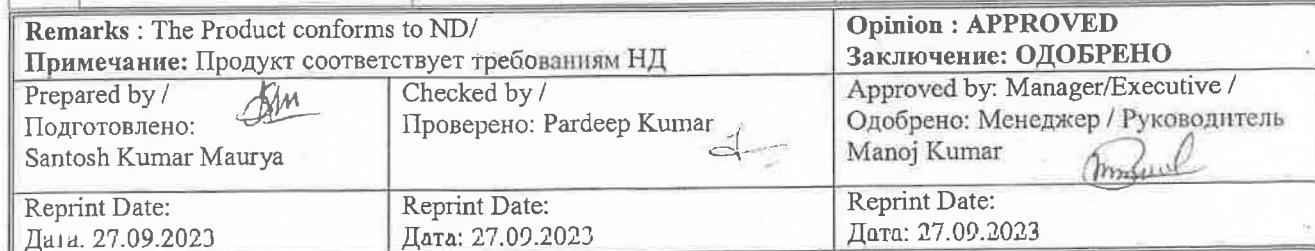 Remarks : The Product conforms to ND/
Примечание: Продукт соответствует требованиям НД
Opinion : APPROVED
Заключение: ОДОБРЕНО
Prepared by /
Подготовлено:
Santosh Kumar Maurya
Checked by /
Проверено: Pardeep Kumar
Approved by: Manager/Executive /
Одобрено: Менеджер / Руководитель
Manoj Kumar
Reprint Date:
Дата. 27.09.2023
Reprint Date:
Дата: 27.09.2023
Reprint Date:
Дата: 27.09.2023